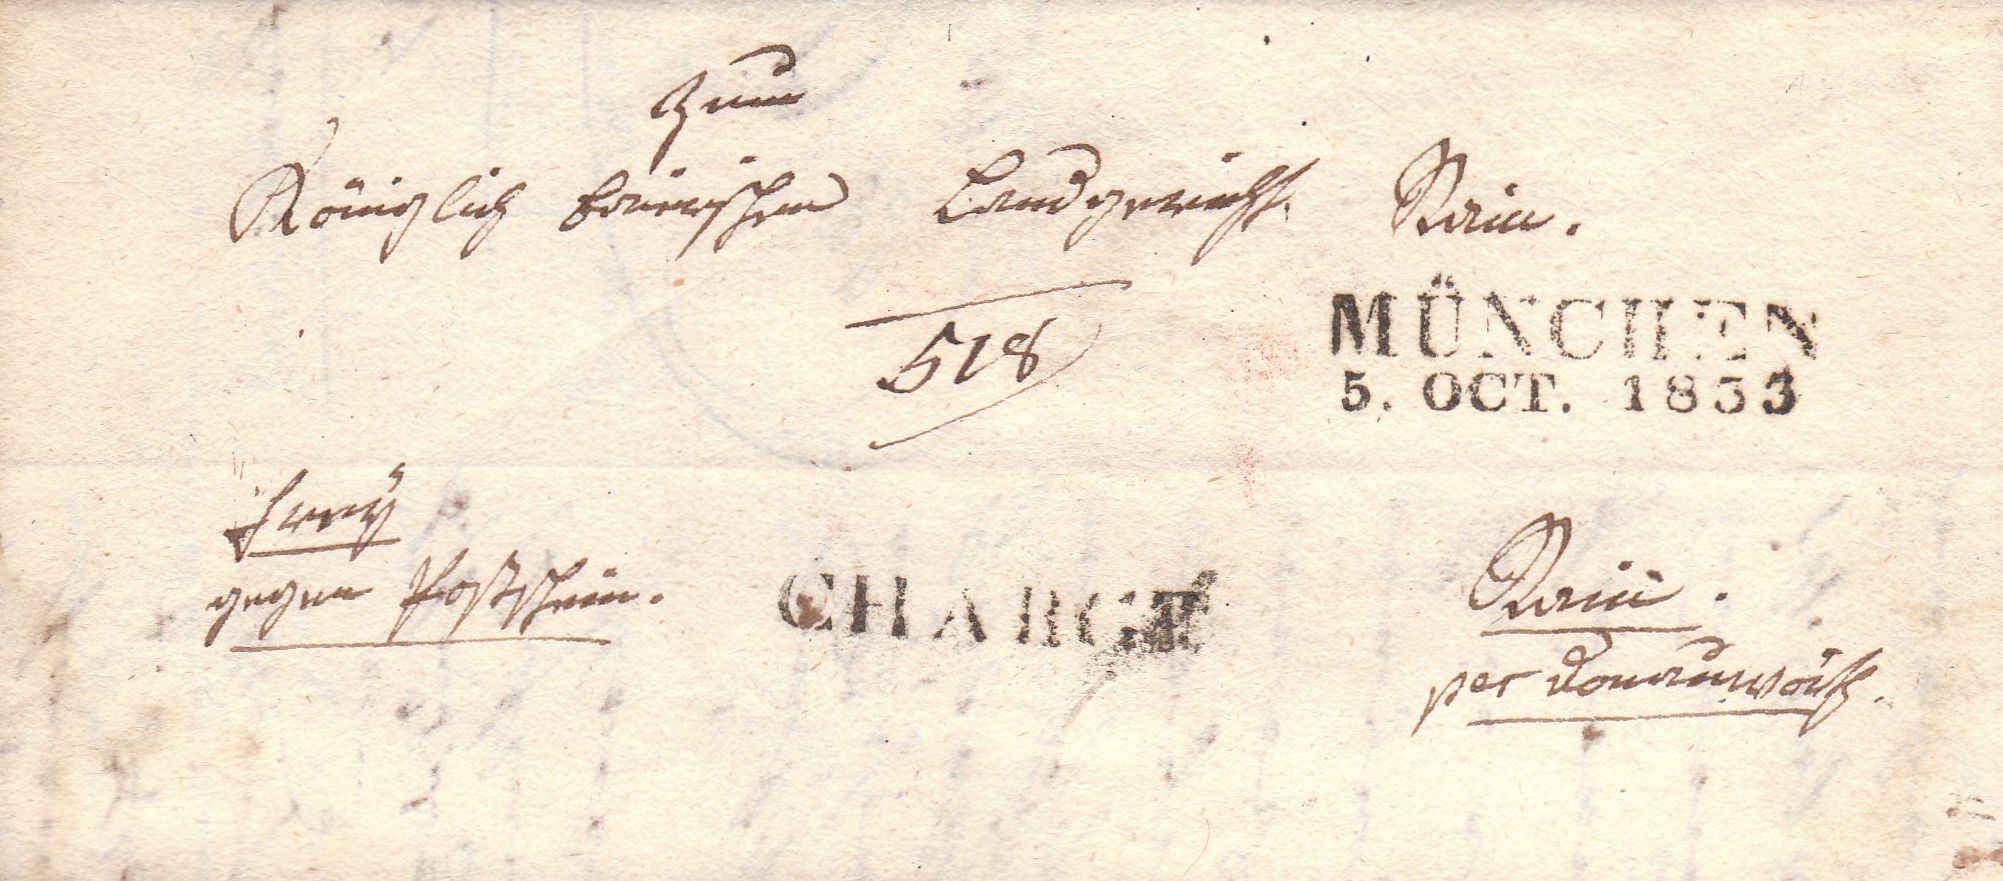 Zum
Königlich baierischen Landgericht Rain.
MÜNCHEN
5. OCT. 1833
518
frey
gegen Postschein.
CHARGÉ
Rain.
per Donauwörth.